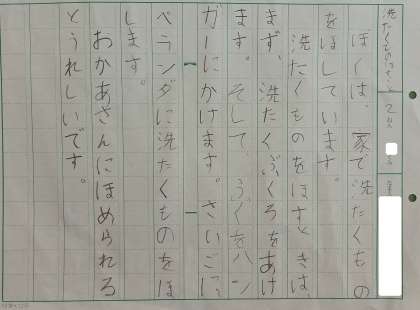 ぼくは、家で洗たくもの
をほしています。
洗たくものをほすときは、
まず、洗たくぶくろをあけ
ます。そして、ふくをハン
ガーにかけます。さいごに、
ベランダに洗たくものをほ
します。
おかあさんにほめられる
とうれしいです。